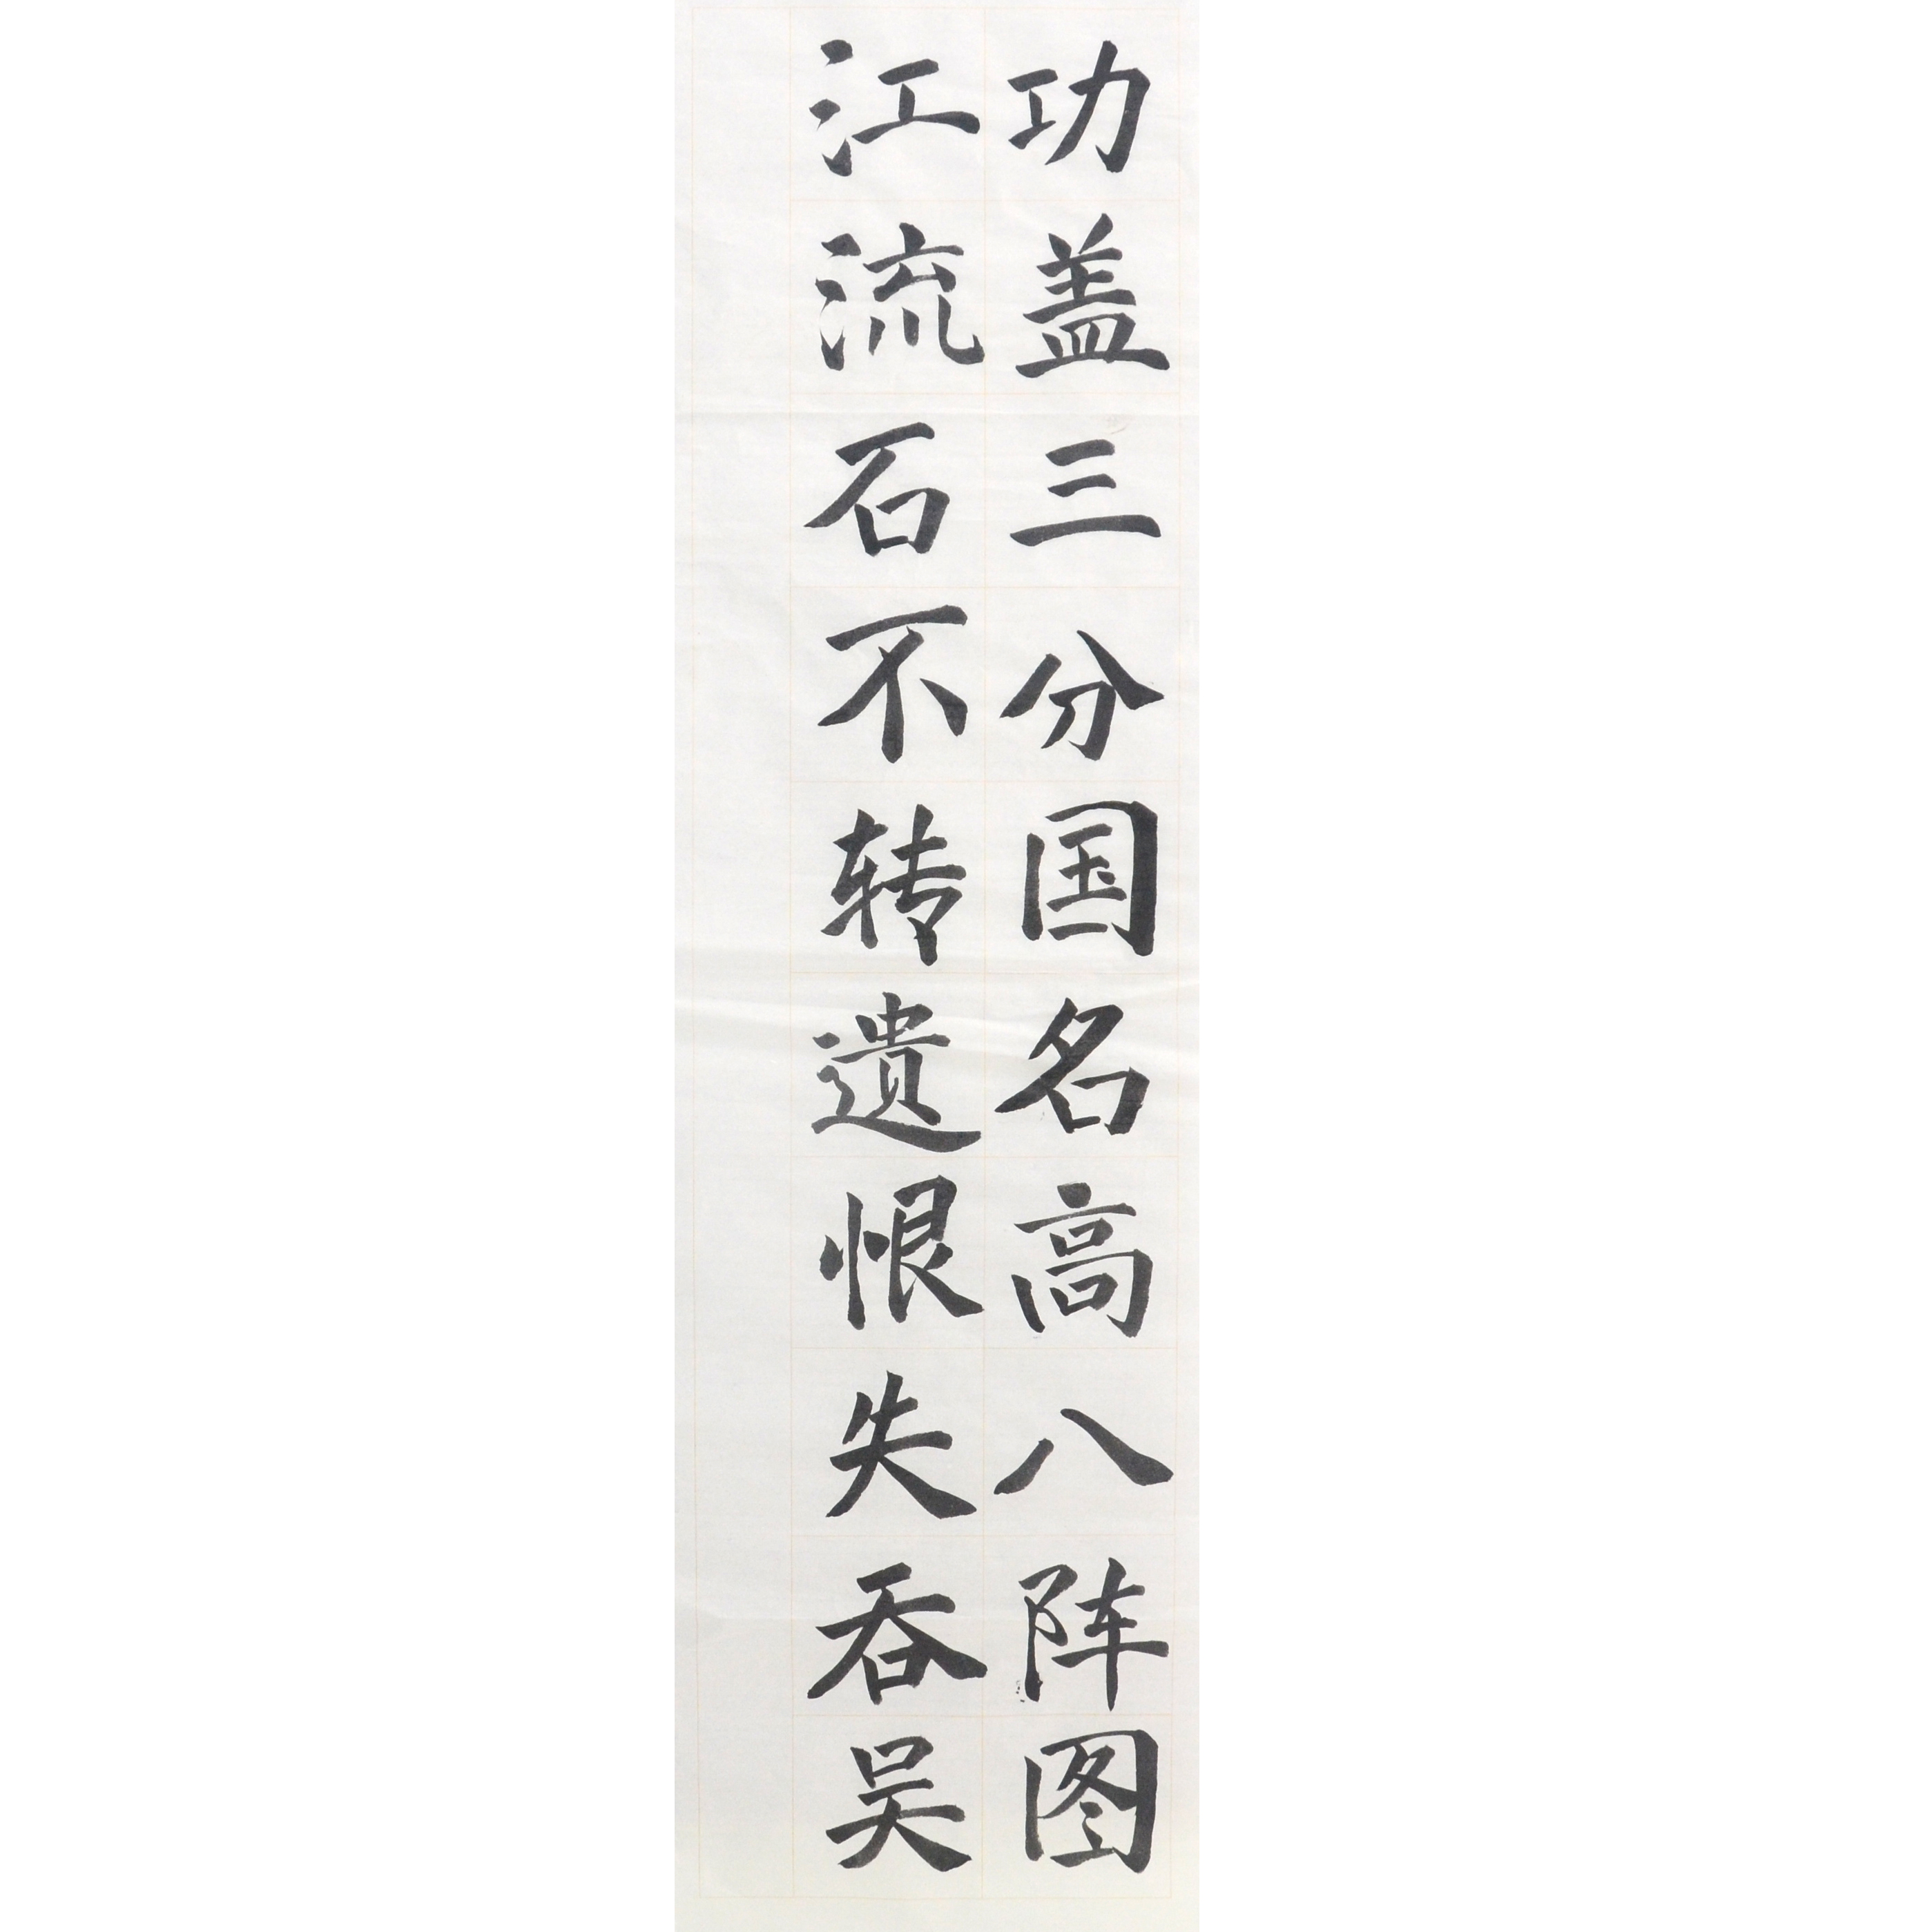 功盖三分国名高八阵图
江流石不转遗恨失吞吴